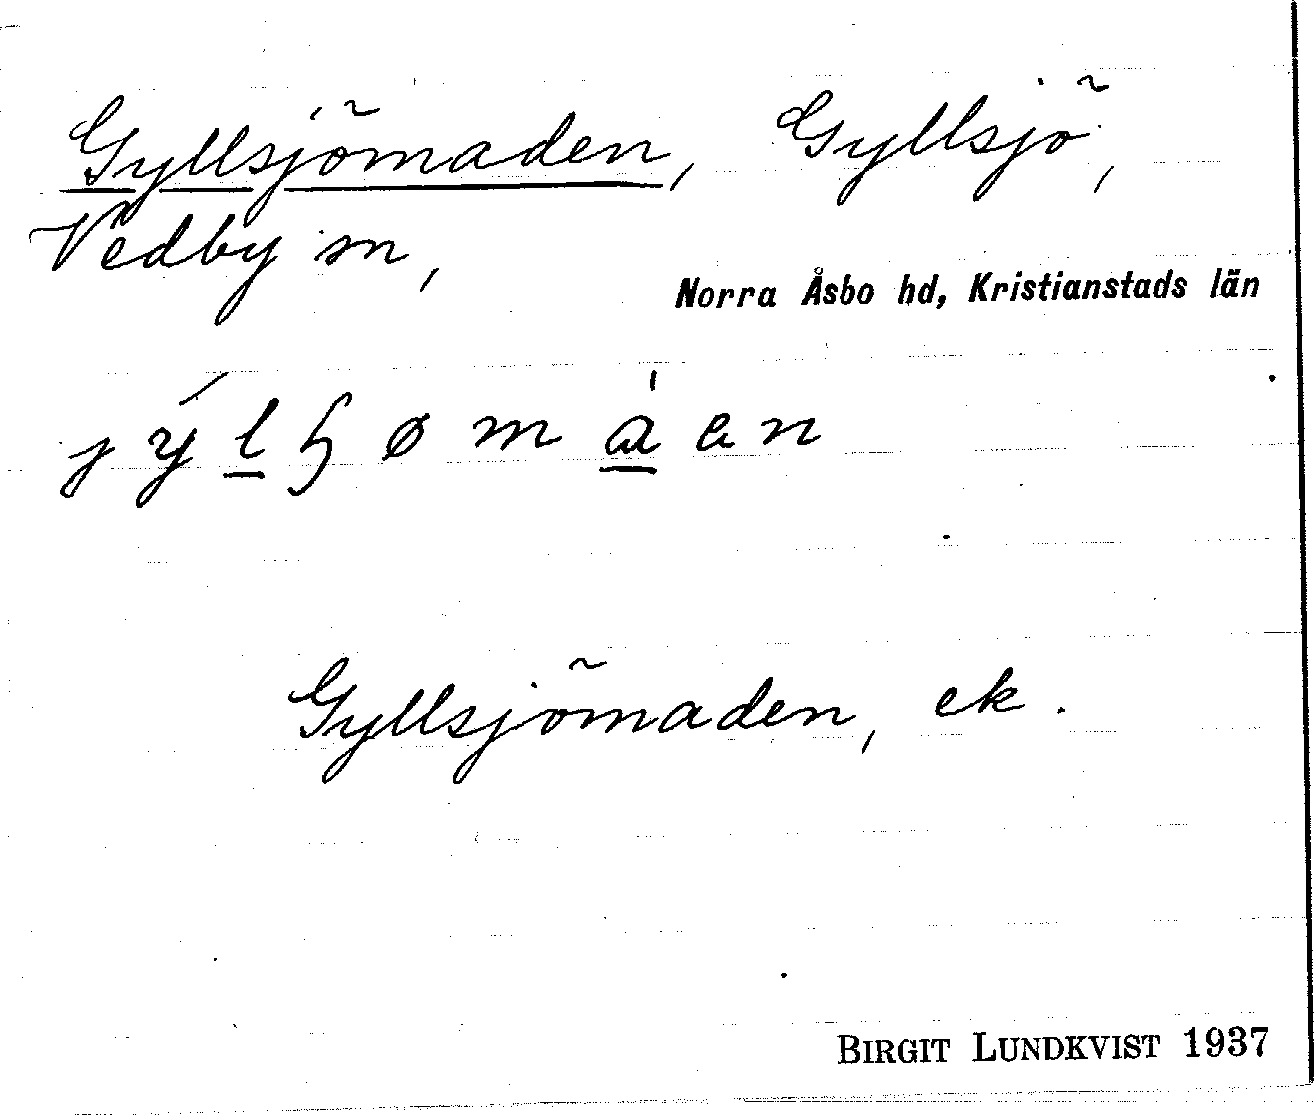 Gyllsjömaden, Gyllsjö,
Vedby sn,
Norra Åsbo hd, Kristianstads län
Gyllsjömaden, ek.
BIRGIT LUNDKVIST 1937